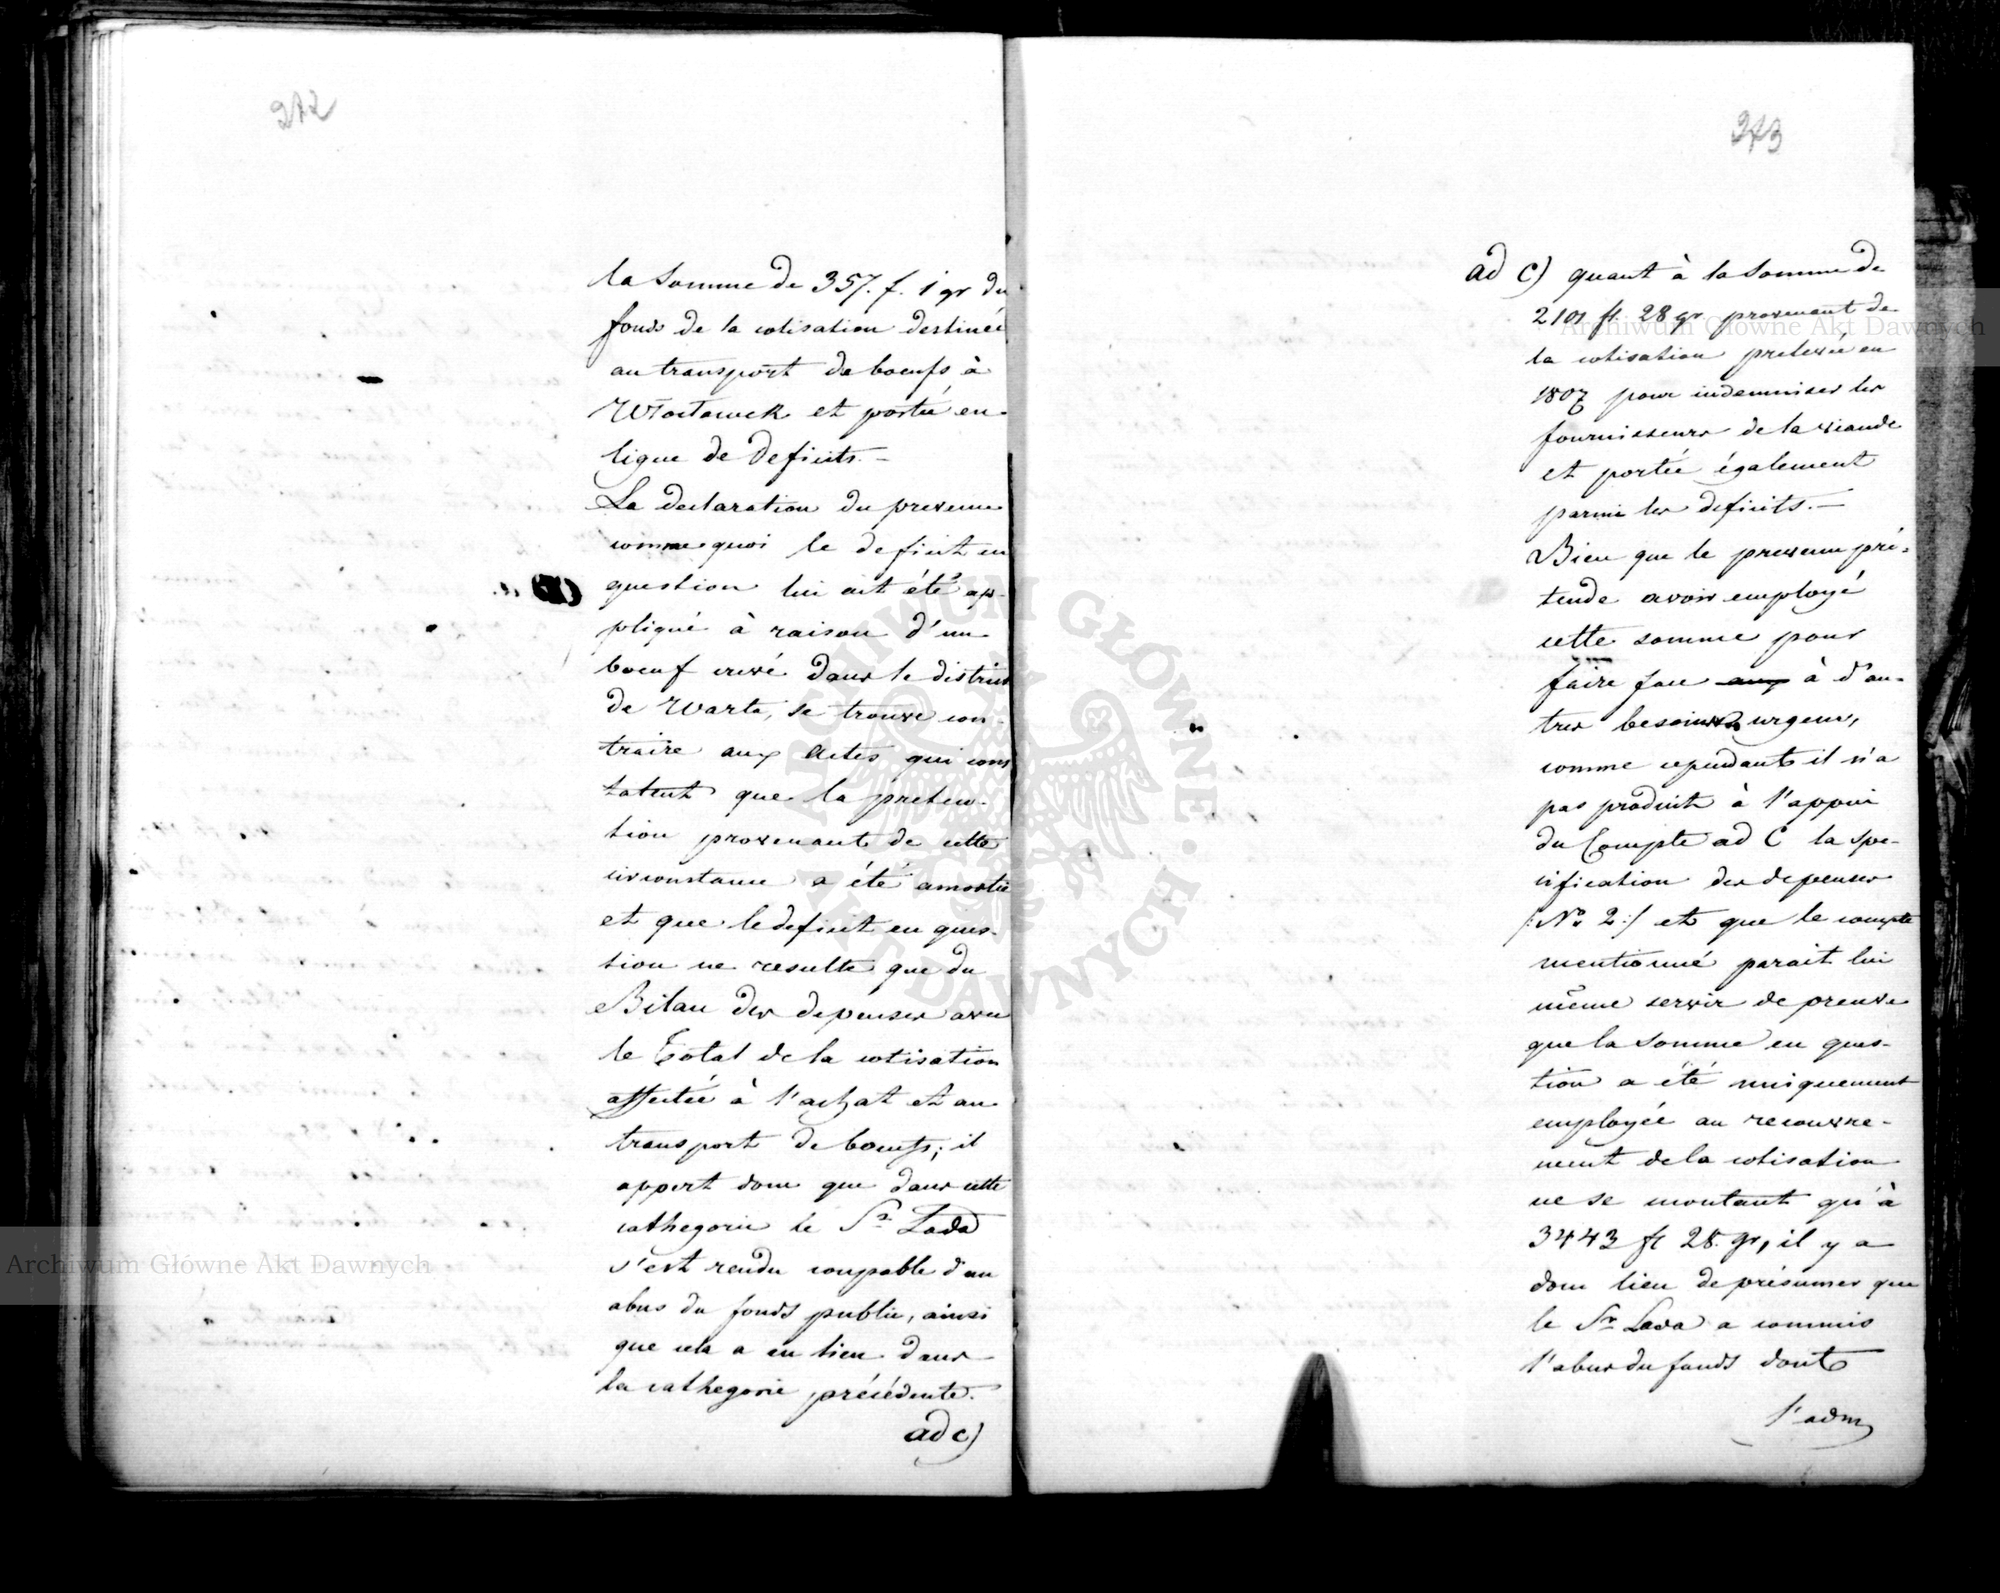 272
la Somme de 357. f. 1 gr du
fonds de la cotisation destinée
au transport de boeufs à
Włocławek et portée en
ligne de deficits.
La declaration du prevenu
comme quoi le deficit en
question lui ait été ap-
pliqué à raison d'un
boeuf crevé dans le district
de Warta, se trouve con-
traire aux Actes qui cons
tatent que la preten-
tion provenant de cette
circonstance a été amortie
et que le deficit en ques-
tion ne resulte que du
Bilan des depenses avec
le Total de la cotisation
affectée à l'achat et au
transport de boeufs; il
appert donc que dans cette
cathegorie le Sr Lada
s'est rendu coupable d'un
abus du fonds public, ainsi
que cela a eu lieu dans
la cathegorie précédente.
ad c)
273
ad c) quant à la Somme de
2101 fl. 28 gr provenant de
la cotisation prelevée en
1807 pour indemniser les
fournisseurs de la viande
et portée également
parmi les deficits. —
Bien que le prevenu pré-
tende avoir employé
cette somme pour
faire face aux à d'au-
tres besoins urgens,
comme cependant il n'a
pas produit à l'appui
du Compte ad C la spe-
cification des depenses
/: No 2 :/ et que le compte
mentionné parait lui
même servir de preuve
que la Somme en ques-
tion a été uniquement
employée au recouvre-
ment de la cotisation
ne se montant qu'à
3443 fl 28. gr, il y a
donc lieu de présumer que
le Sr Lada a commis
l'abus du fonds dont
l'adm
Archiwum Główne Akt Dawnych
Archiwum Główne Akt Dawnych
ARCHIWUM GŁÓWNE · AKT DAWNYCH ·